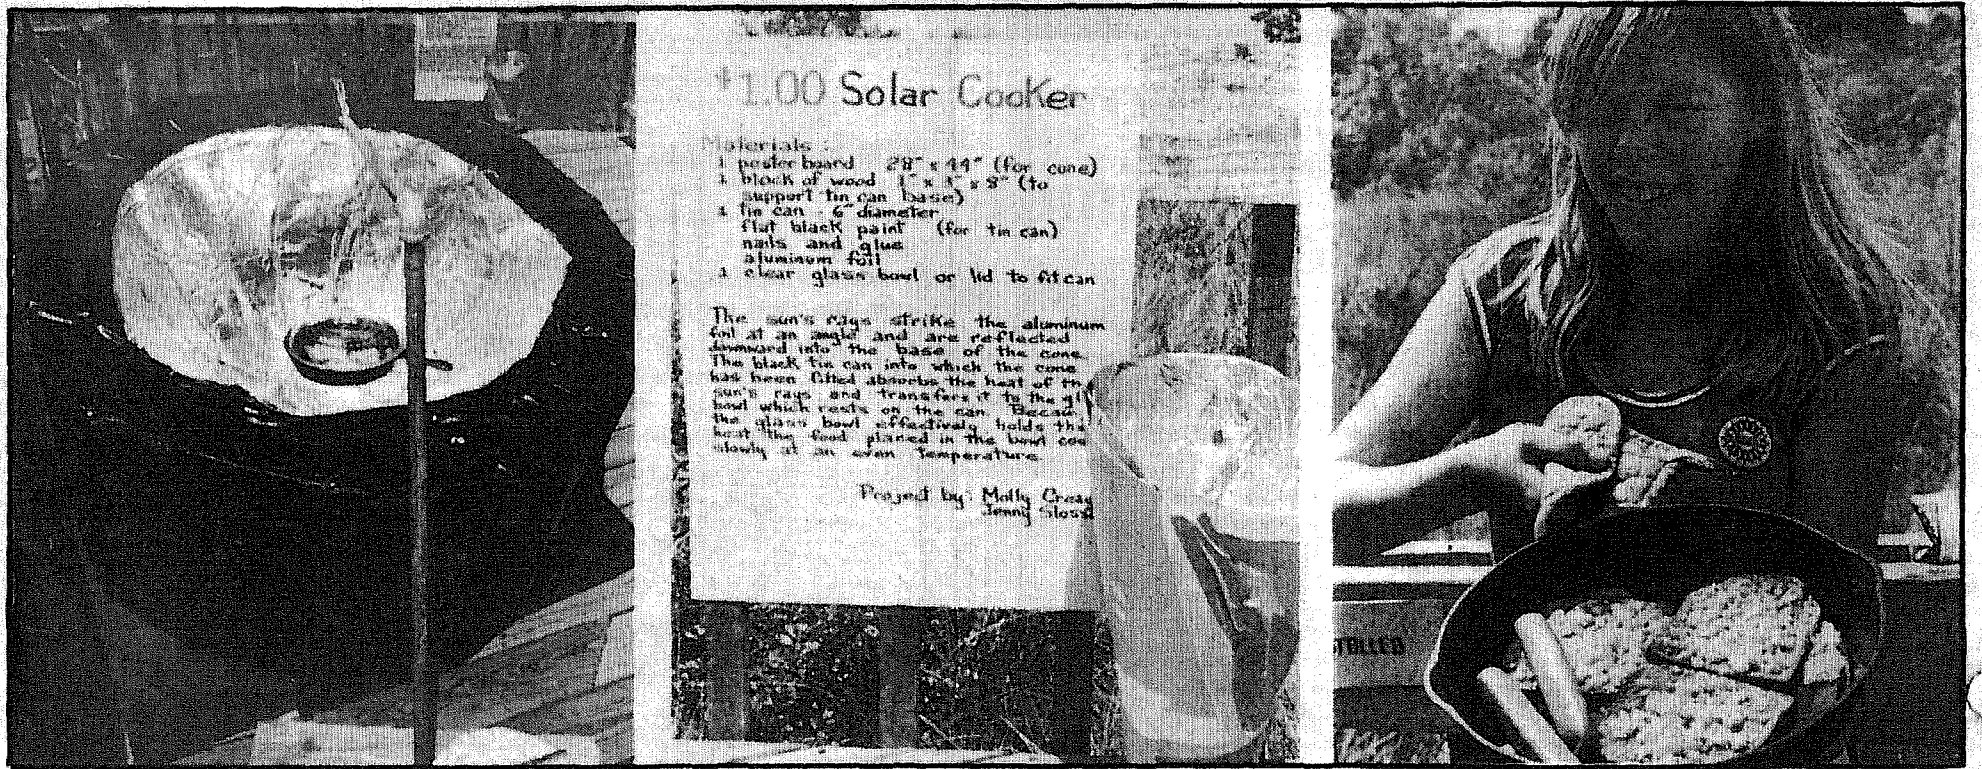 $1.00 Solar Cooker
Materials :
1 poster board 28" x 44" (for cone)
1 block of wood 1" x x 8" (to
support tin can base)
1 tin can - 6" diameter
flat black paint (for tin can)
nails and glue
aluminum foil
1 clear glass bowl or lid to fit can
The sun's rays strike the aluminum
foil at an angle and are reflected
downward into the base of the cone.
The black tin can into which the cone
has been fitted absorbs the heat of th
sun's rays and transfers it to the gl
bowl which rests on the can. Becau
the glass bowl effectively holds the
heat the food placed in the bowl coo
slowly at an even temperature
Project by: Molly
Jenny